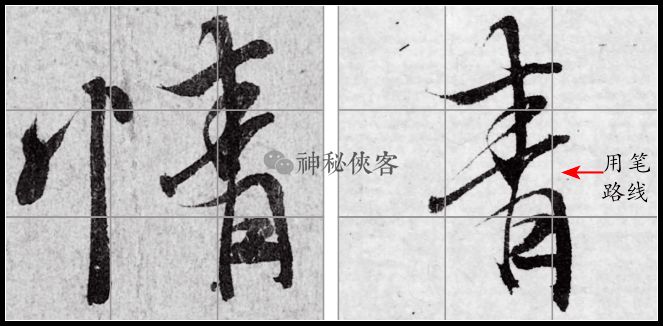 情
青
神秘俠客
用笔
路线